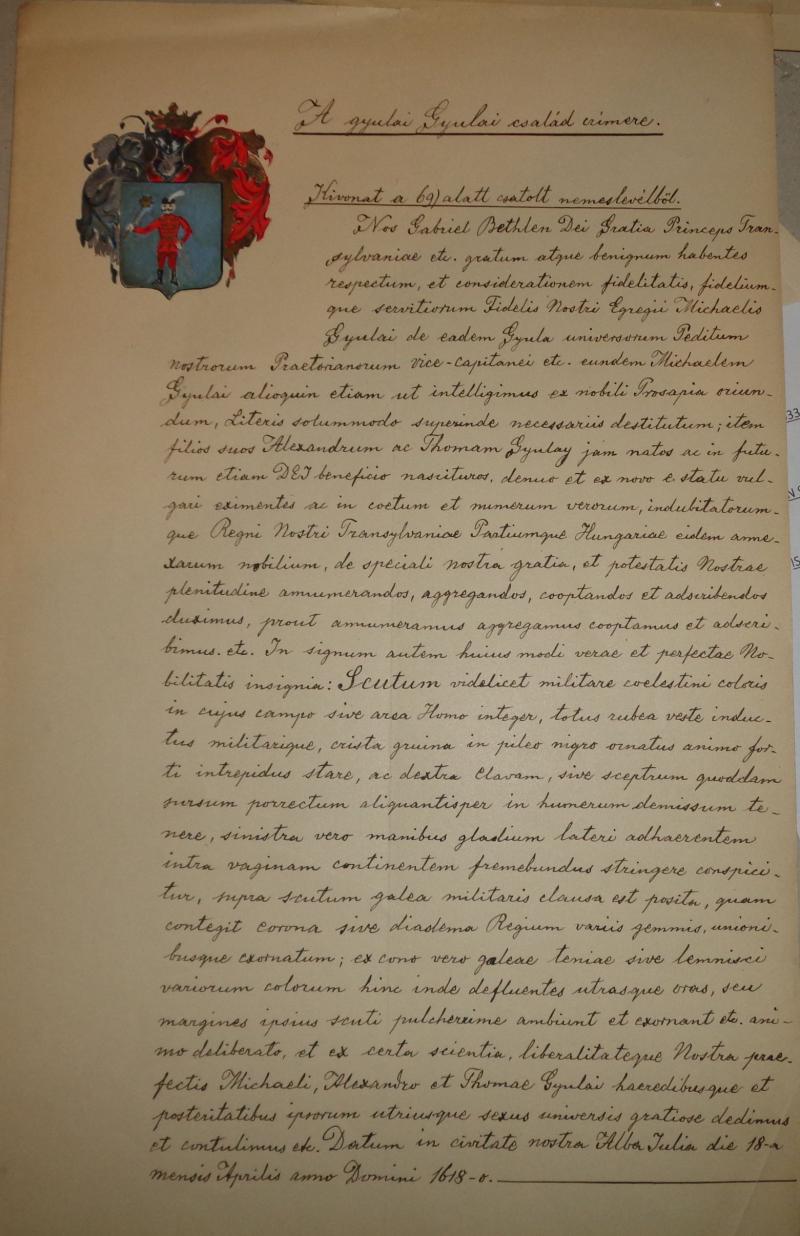 A gyulai Gyulai család czimere.
Kivonat a 69) alatt csatolt nemeslevélből.
Nos Gabriel Bethlen Dei Gratia Princeps Tran-
sylvaniae etc. gratum atque benignum habentes
respectum, et considerationem fidelitatis, fidelium-
que servitiorum Fidelis Nostri Egregii Michaelis
Gyulai de eadem Gyula universorum Peditum
nostrorum Praetorianorum vice-capitanei etc. eundem Michaelem
Gyulai alioquin etiam ut intelligimus ex nobili Prosapia oriun-
dum, Literis solummodo superinde necessariis destitutum; item
filios suos Alexandrum ac Thomam Gyulay jam natos ac in futu-
rum etiam DEI beneficio nascituros, denuo et ex novo e statu vul-
gari eximentes ac in coetum et numerum verorum, indubitatorum-
que Regni Nostri Transylvaniae Partiumque Hungariae eidem anne-
xarum nobilium, de speciali nostra gratia, et potestatis Nostrae
plenitudine annumerandos, aggregandos, cooptandos et adscribendos
duximus, prout annumeramus aggregamus cooptamus et adscri-
bimus. etc. In signum autem huius modi verae et perfectae No-
bilitatis insignia: Scutum videlicet militare coelestini coloris
in cujus campo sive area Homo integer, totus rubea veste induc-
tus militarique, crista gruina in pileo nigro ornatus animo for-
ti intrepidus stare, ac dextra Clavam, sive sceptrum quoddam
sursum porrectum aliquantisper in humerum demissum te-
nere, sinistra vero manibus gladium lateri adhaerentem
intra vaginam continentem fremebundus stringere conspici-
tur, supra scutum galea militaris clausa est posita, quam
contegit corona sive diadema Regium variis gemmis, unioni-
busque exornatum; ex cono vero galeae teniae sive lemnisci
variorum colorum hinc inde defluentes utrasque oras, seu
margines ipsius scuti pulcherxime ambiunt et exornant etc. ani-
mo deliberato, et ex certa scientia, liberalitateque Nostra prae-
fectis Michaeli, Alexandro et Thomae Gyulai haeredibusque et
posteritatibus ipsorum utriusque sexus universis gratiose dedimus
et contulimus etc. Datum in civitate nostra Alba Julia die 18-a
mensis Aprilis anno Domini 1618-o.
33